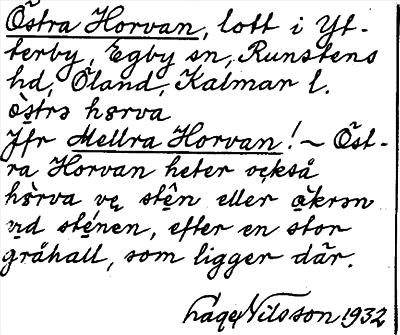 Östra Horvan, lott i Yt-
terby, Egby sn, Runstens
hd, Öland, Kalmar l.
ò̱strə hɤrva
Jfr Mellra Horvan! ~ Öst-
ra Horvan heter också
hɤ̀rva vę stên eller ò̱krən
vı̱d sténen, efter en stor
gråhall, som ligger där.
Nilsson 1932